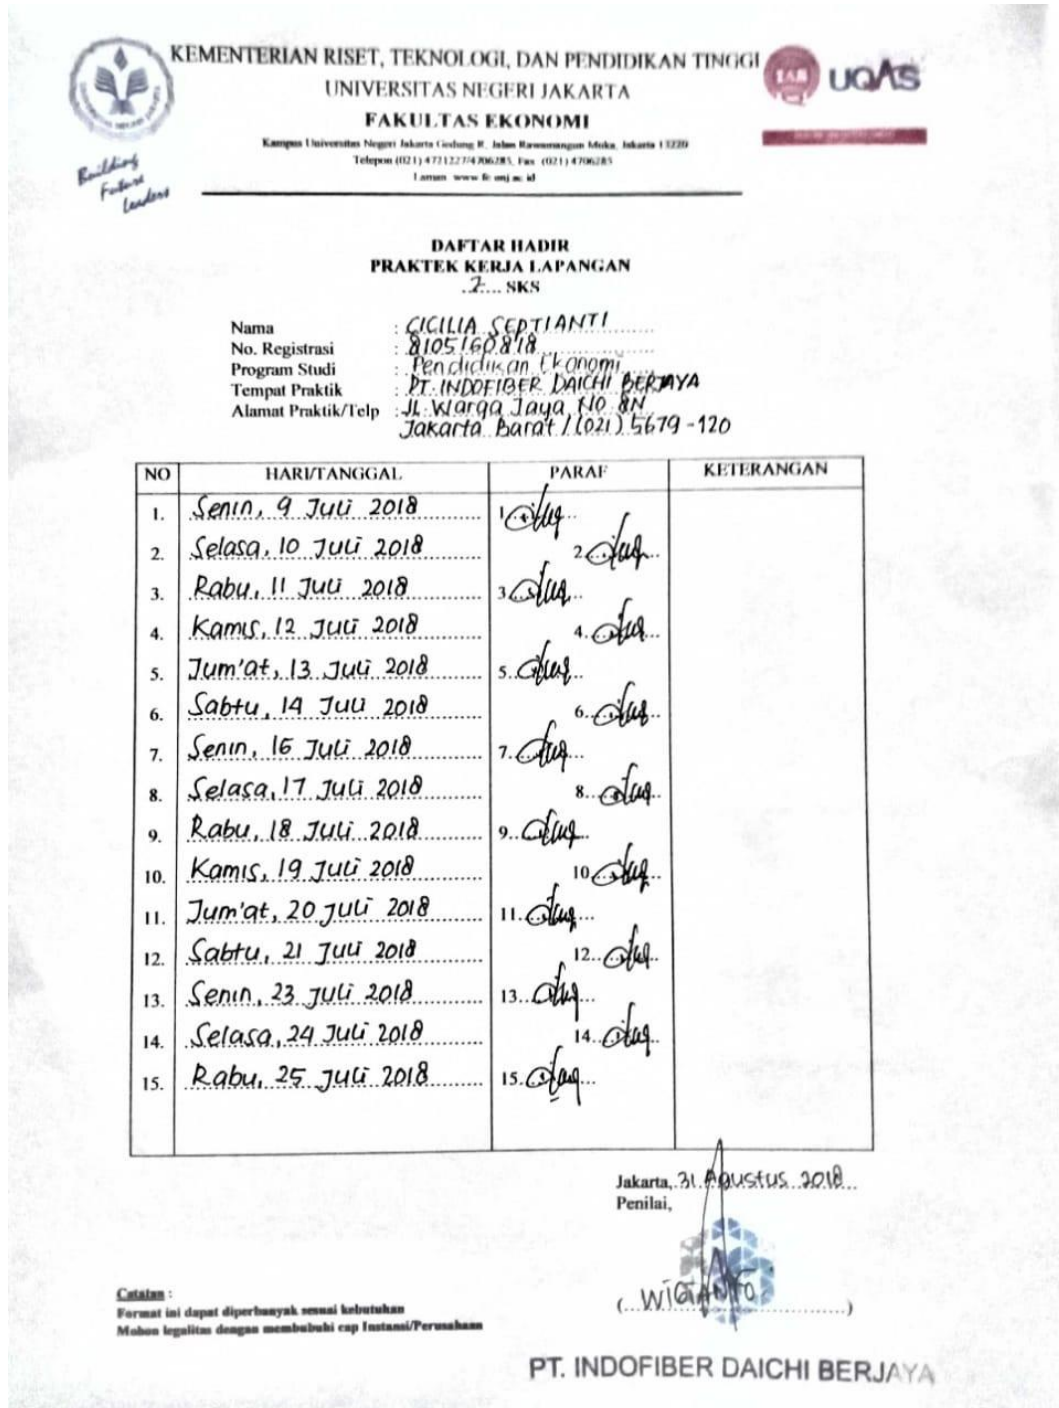 KEMENTERIAN RISET, TEKNOLOGI, DAN PENDIDIKAN TINGGI
UNIVERSITAS NEGERI JAKARTA
FAKULTAS EKONOMI
Kampus Universitas Negeri Jakarta Gedung R, Jalan Rawamangun Muka, Jakarta 13220
Telepon (021) 4721227/4706285, Fax (021) 4706285
Laman www fe unj ac id
Building
Future
Leaders
UQAS
DAFTAR HADIR
PRAKTEK KERJA LAPANGAN
2 SKS
Nama : CICILIA SEPTIANTI
No. Registrasi : 8105160818
Program Studi : Pendidikan Ekonomi
Tempat Praktik : PT. INDOFIBER DAICHI BERJAYA
Alamat Praktik/Telp : Jl. Warga Jaya NO 8N
Jakarta Barat / (021) 5679-120
NO HARI/TANGGAL PARAF KETERANGAN
1. Senin, 9 Juli 2018 1
2. Selasa, 10 Juli 2018 2
3. Rabu, 11 Juli 2018 3
4. Kamis, 12 Juli 2018 4.
5. Jum'at, 13 Juli 2018 5.
6. Sabtu, 14 Juli 2018 6.
7. Senin, 16 Juli 2018 7.
8. Selasa, 17 Juli 2018 8.
9. Rabu, 18 Juli 2018 9.
10. Kamis, 19 Juli 2018 10
11. Jum'at, 20 Juli 2018 11.
12. Sabtu, 21 Juli 2018 12.
13. Senin, 23 Juli 2018 13.
14. Selasa, 24 Juli 2018 14.
15. Rabu, 25 Juli 2018 15.
Jakarta, 31 Agustus 2018
Penilai,
(WIGIANTO)
Catatan :
Format ini dapat diperbanyak sesuai kebutuhan
Mohon legalitas dengan membubuhi cap Instansi/Perusahaan
PT. INDOFIBER DAICHI BERJAYA